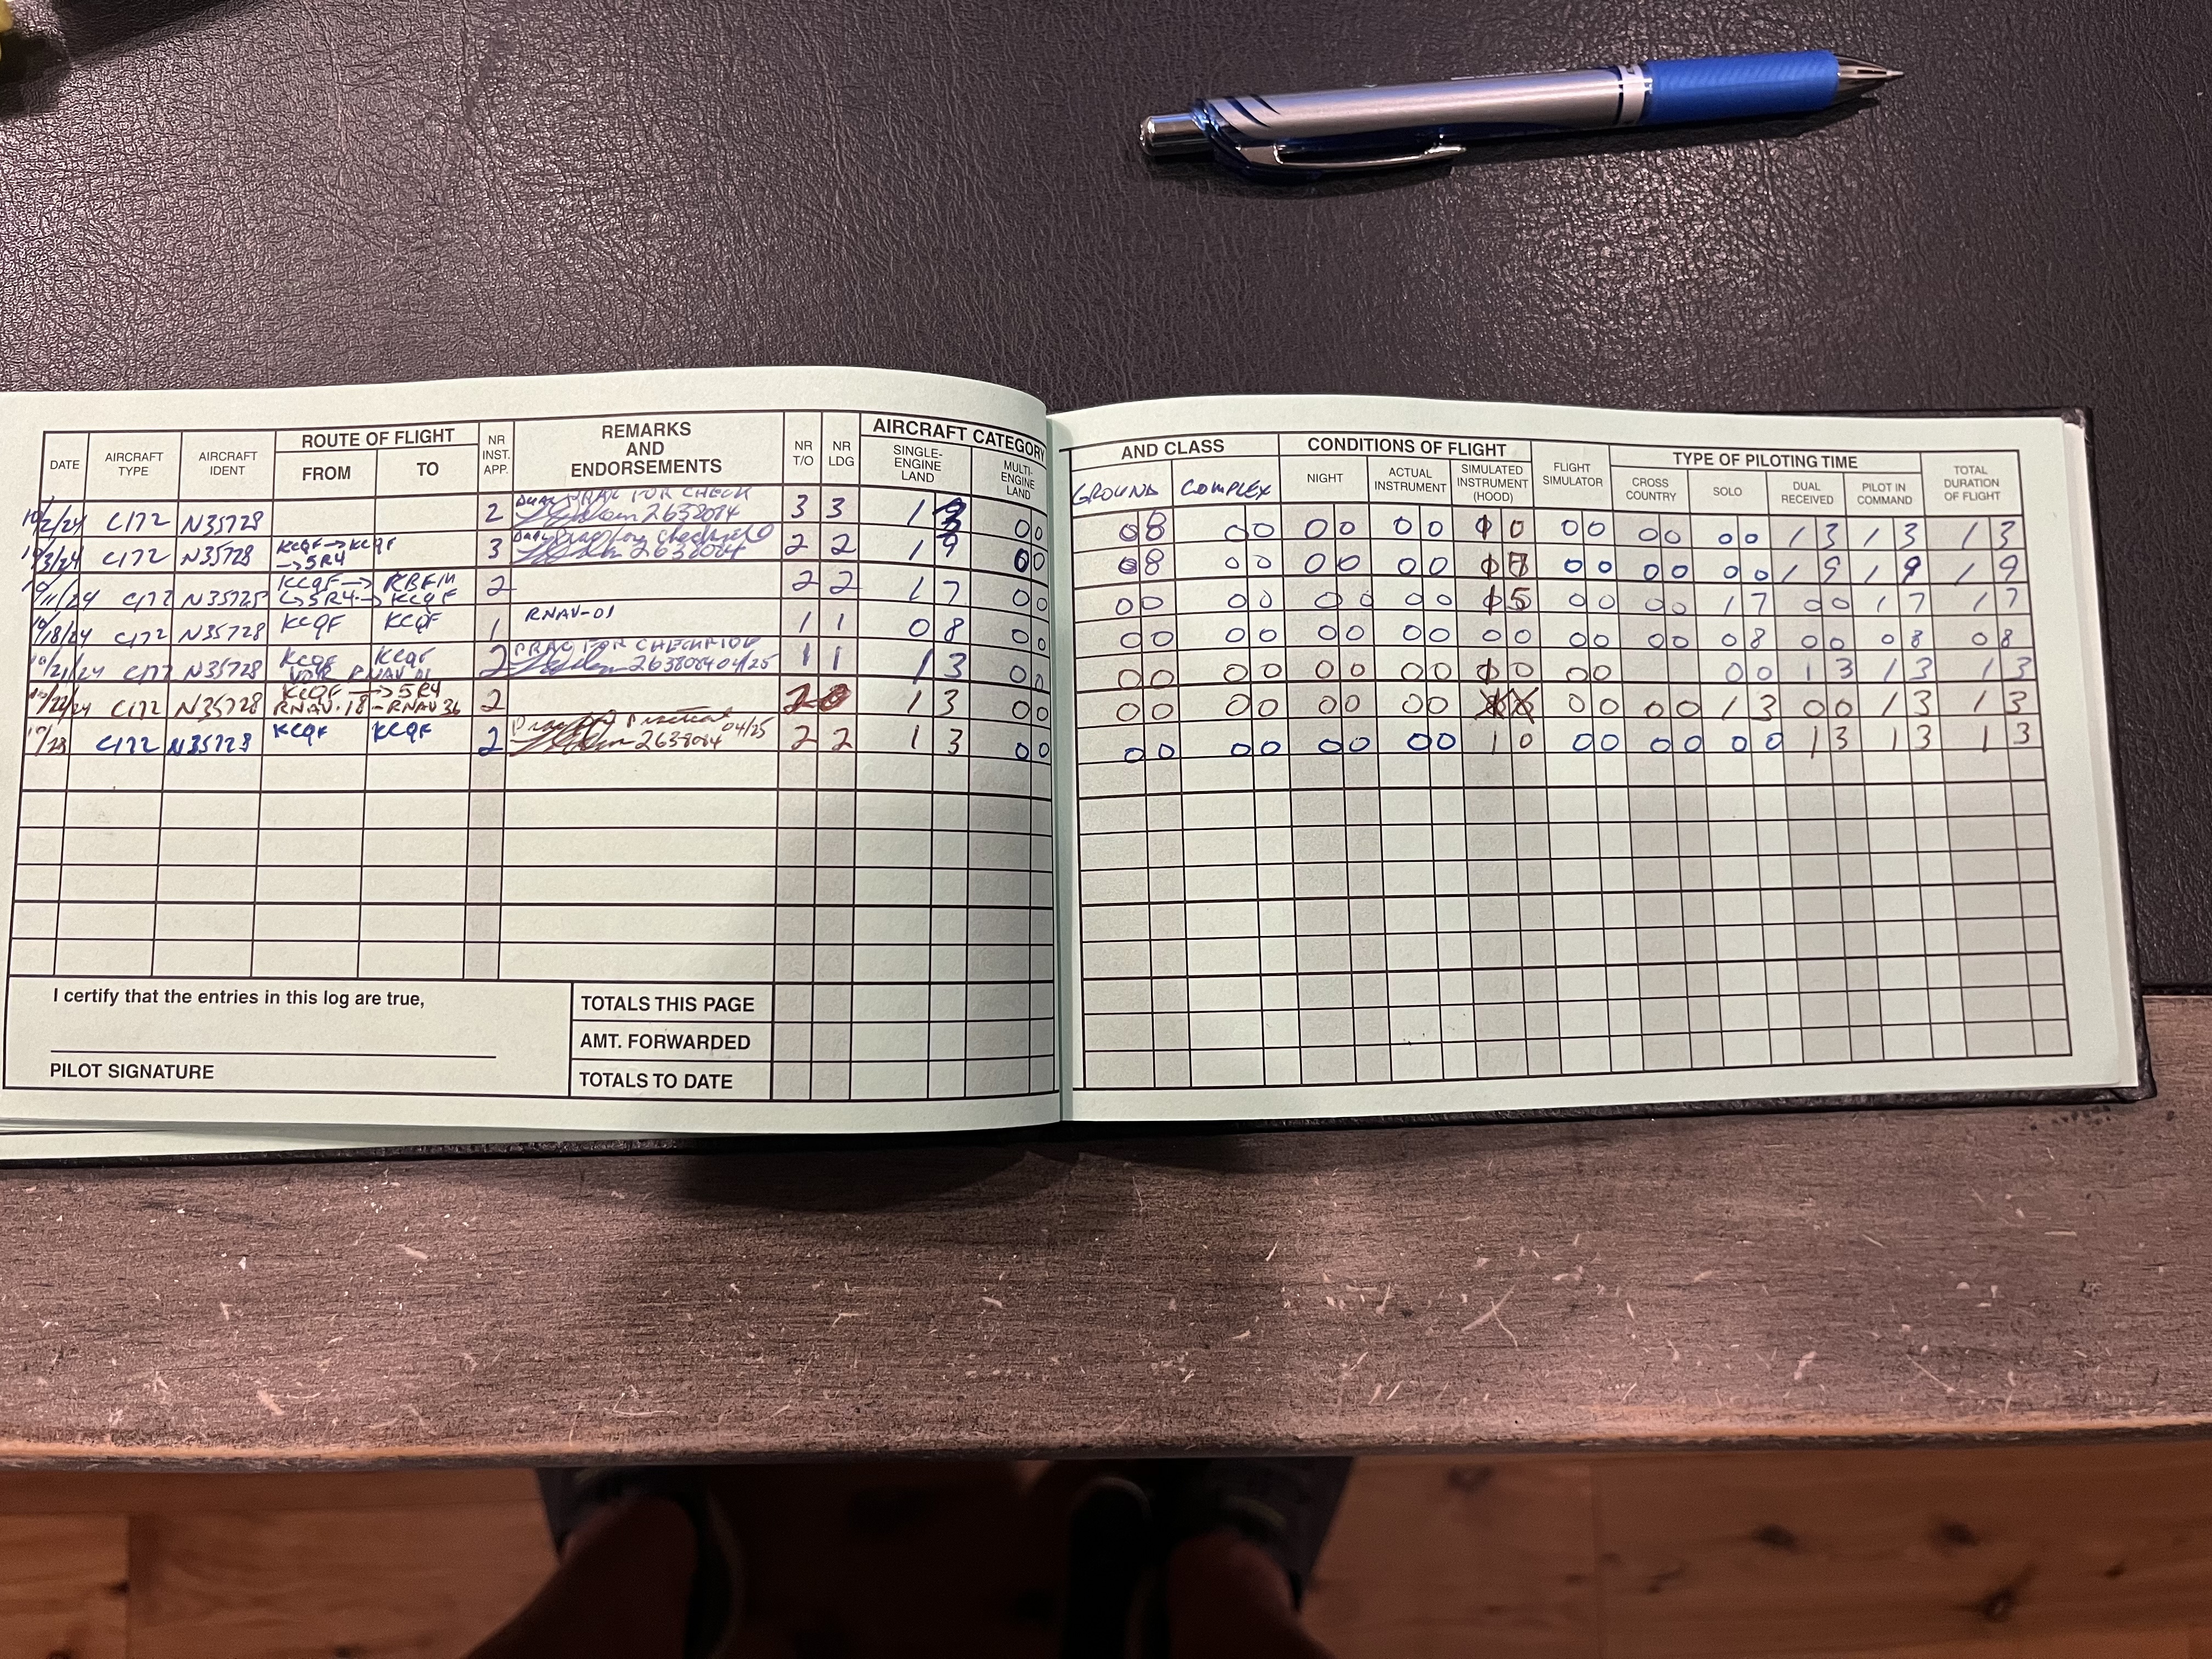 ROUTE OF FLIGHT
AIRCRAFT CATEGORY
DATE AIRCRAFT TYPE AIRCRAFT IDENT FROM TO NR INST. APP. REMARKS AND ENDORSEMENTS NR T/O NR LDG SINGLE-ENGINE LAND MULTI-ENGINE LAND
AND CLASS CONDITIONS OF FLIGHT TYPE OF PILOTING TIME
GROUND COMPLEX NIGHT ACTUAL INSTRUMENT SIMULATED INSTRUMENT (HOOD) FLIGHT SIMULATOR CROSS COUNTRY SOLO DUAL RECEIVED PILOT IN COMMAND TOTAL DURATION OF FLIGHT
10/2/24 C172 N35728 2 FOR CHECK 2638084 3 3 1 3 0 0 0 8 0 0 0 0 0 0 0 0 0 0 0 0 0 1 3 1 3 1 3
10/3/24 C172 N35728 KCQF → KCQF → 5R4 3 for checkride 2638084 2 2 1 9 0 0 0 8 0 0 0 0 0 0 0 0 0 0 0 0 1 9 1 9 1 9
10/11/24 C172 N35725 KCQF → KBFM → 5R4 → KCQF 2 2 2 1 7 0 0 0 0 0 0 0 0 0 0 5 0 0 0 0 1 7 0 0 1 7 1 7
10/18/24 C172 N35728 KCQF KCQF 1 RNAV-01 1 1 0 8 0 0 0 0 0 0 0 0 0 0 0 0 0 0 0 0 0 8 0 0 0 8 0 8
10/21/24 C172 N35728 KCQF KCQF VOR RNAV 01 2 PRAC FOR CHECKRIDE 2638084 04/25 1 1 1 3 0 0 0 0 0 0 0 0 0 0 0 0 0 0 0 1 3 1 3 1 3
10/22/24 C172 N35728 KCQF → 5R4 RNAV-18 - RNAV 36 2 2 1 3 0 0 0 0 0 0 0 0 0 0 0 0 0 0 1 3 0 0 1 3 1 3
10/23 C172 N35728 KCQF KCQF 2 Practical 2638084 04/25 2 2 1 3 0 0 0 0 0 0 0 0 0 0 1 0 0 0 0 0 0 0 1 3 1 3 1 3
I certify that the entries in this log are true,
PILOT SIGNATURE
TOTALS THIS PAGE
AMT. FORWARDED
TOTALS TO DATE